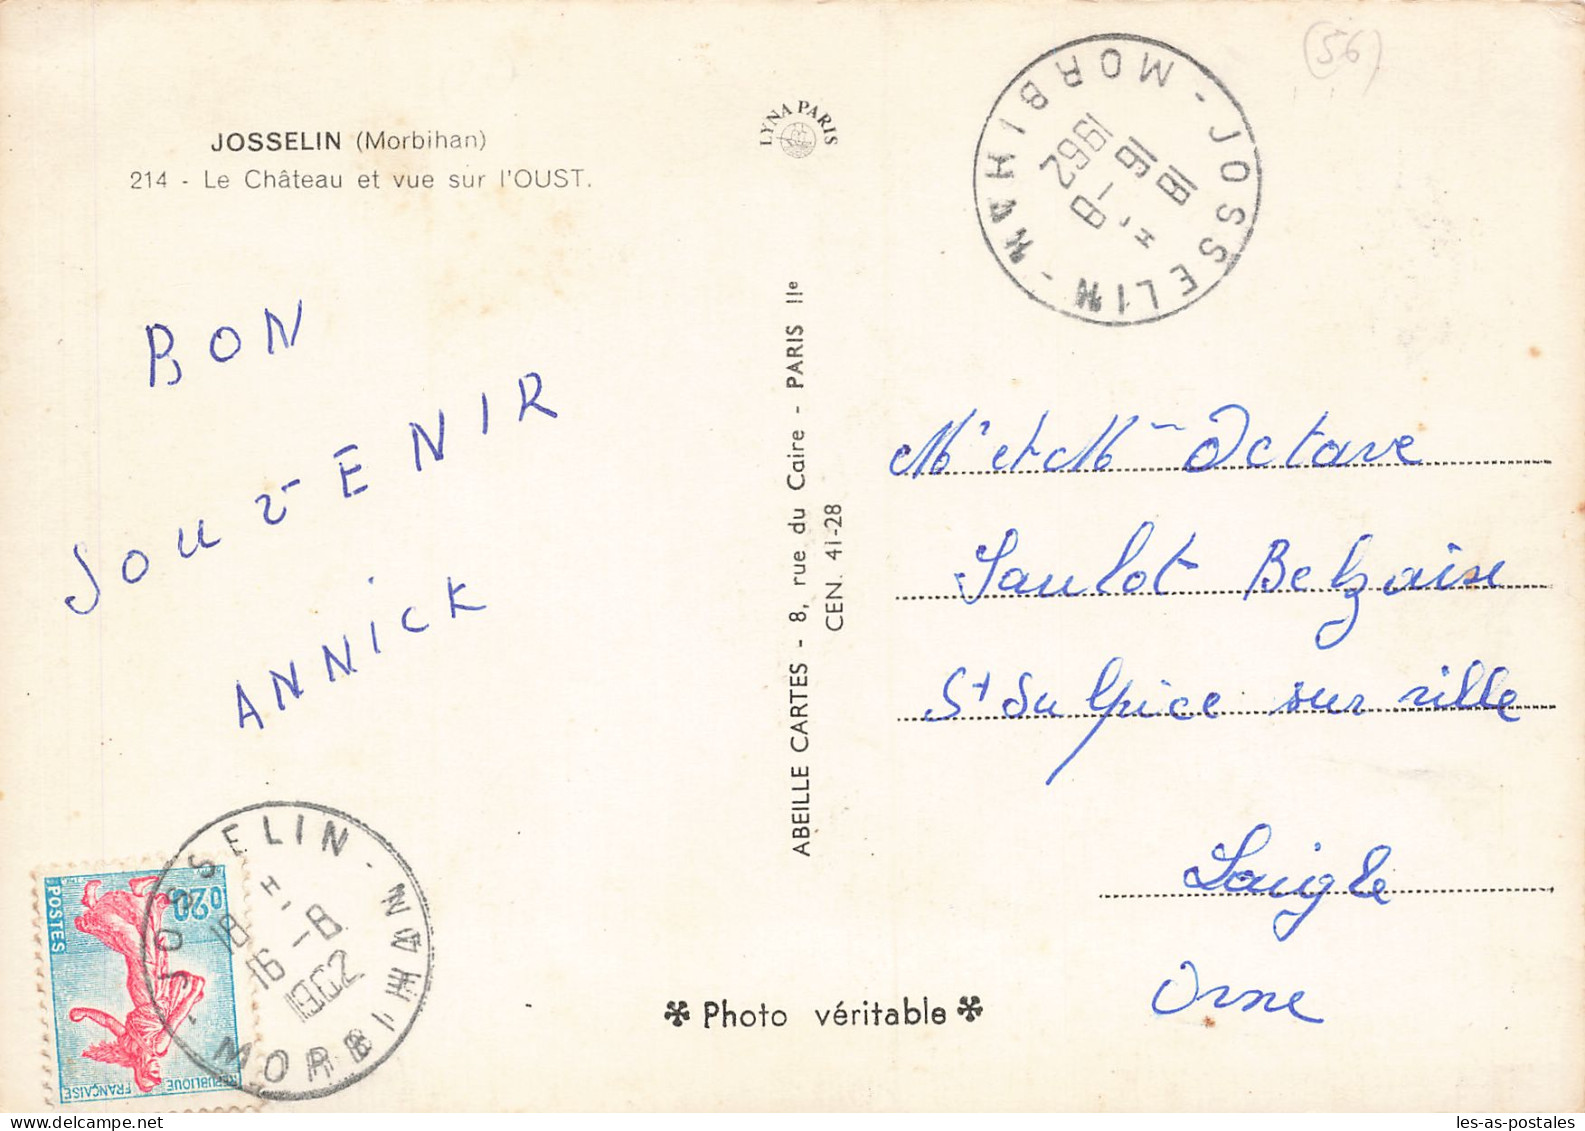 JOSSELIN (Morbihan)
214 - Le Château et vue sur l'OUST.
BON
SOUVENIR
ANNICK
LYNA PARIS
ABEILLE CARTES - 8, rue du Caire - PARIS IIe
CEN. 41-28
(56)
JOSSELIN - MORBIHAN
18 H.
16 - 8
1962
Mr et Mme Octave
Saulot Belzaise
St Sulpice sur rille
Laigle
Orne
✻ Photo véritable ✻
JOSSELIN - MORBIHAN
18 H.
16 - 8
1962
0,20
POSTES
REPUBLIQUE FRANÇAISE
les-as-postales